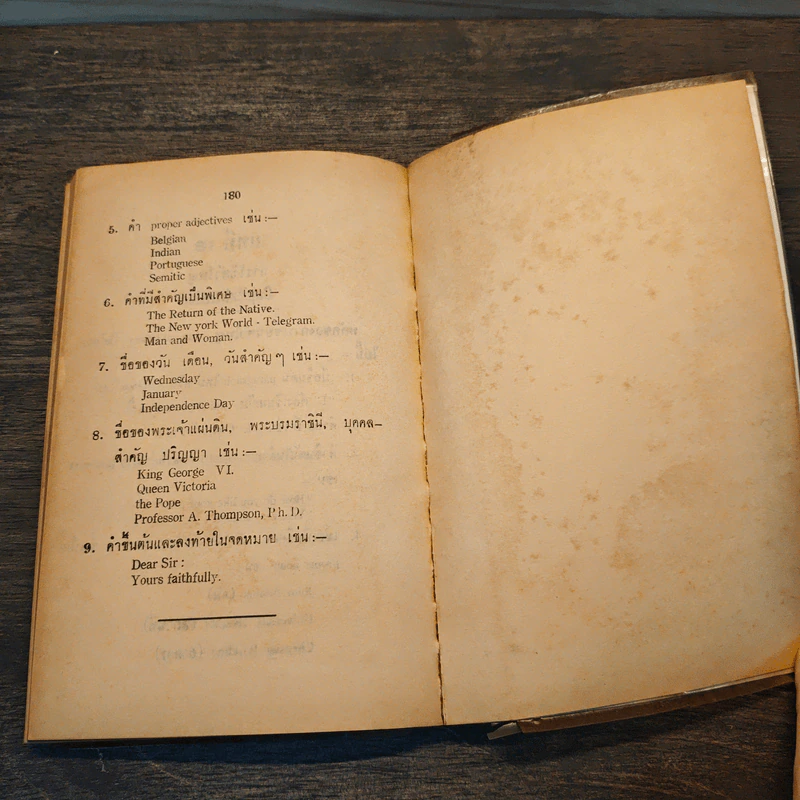 180
5. คำ proper adjectives เช่น :—
Belgian
Indian
Portuguese
Semitic
6. คำที่มีสำคัญเป็นพิเศษ เช่น :—
The Return of the Native.
The New york World - Telegram.
Man and Woman.
7. ชื่อของวัน เดือน, วันสำคัญๆ เช่น :—
Wednesday
January
Independence Day
8. ชื่อของพระเจ้าแผ่นดิน, พระบรมราชินี, บุคคล—
สำคัญ ปริญญา เช่น :—
King George VI.
Queen Victoria
the Pope
Professor A. Thompson, Ph. D.
9. คำขึ้นต้นและลงท้ายในจดหมาย เช่น :—
Dear Sir :
Yours faithfully.